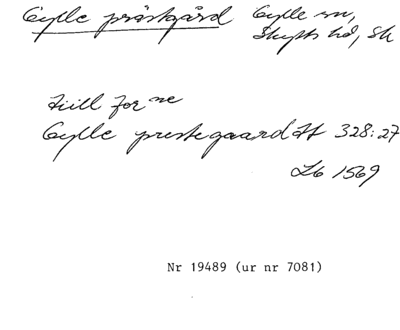 Gylle prästgård Gylle sn,
Skytts hd, Sk
till for ne
Gylle prestegaard ff 328:27
Lb 1569
Nr 19489 (ur nr 7081)